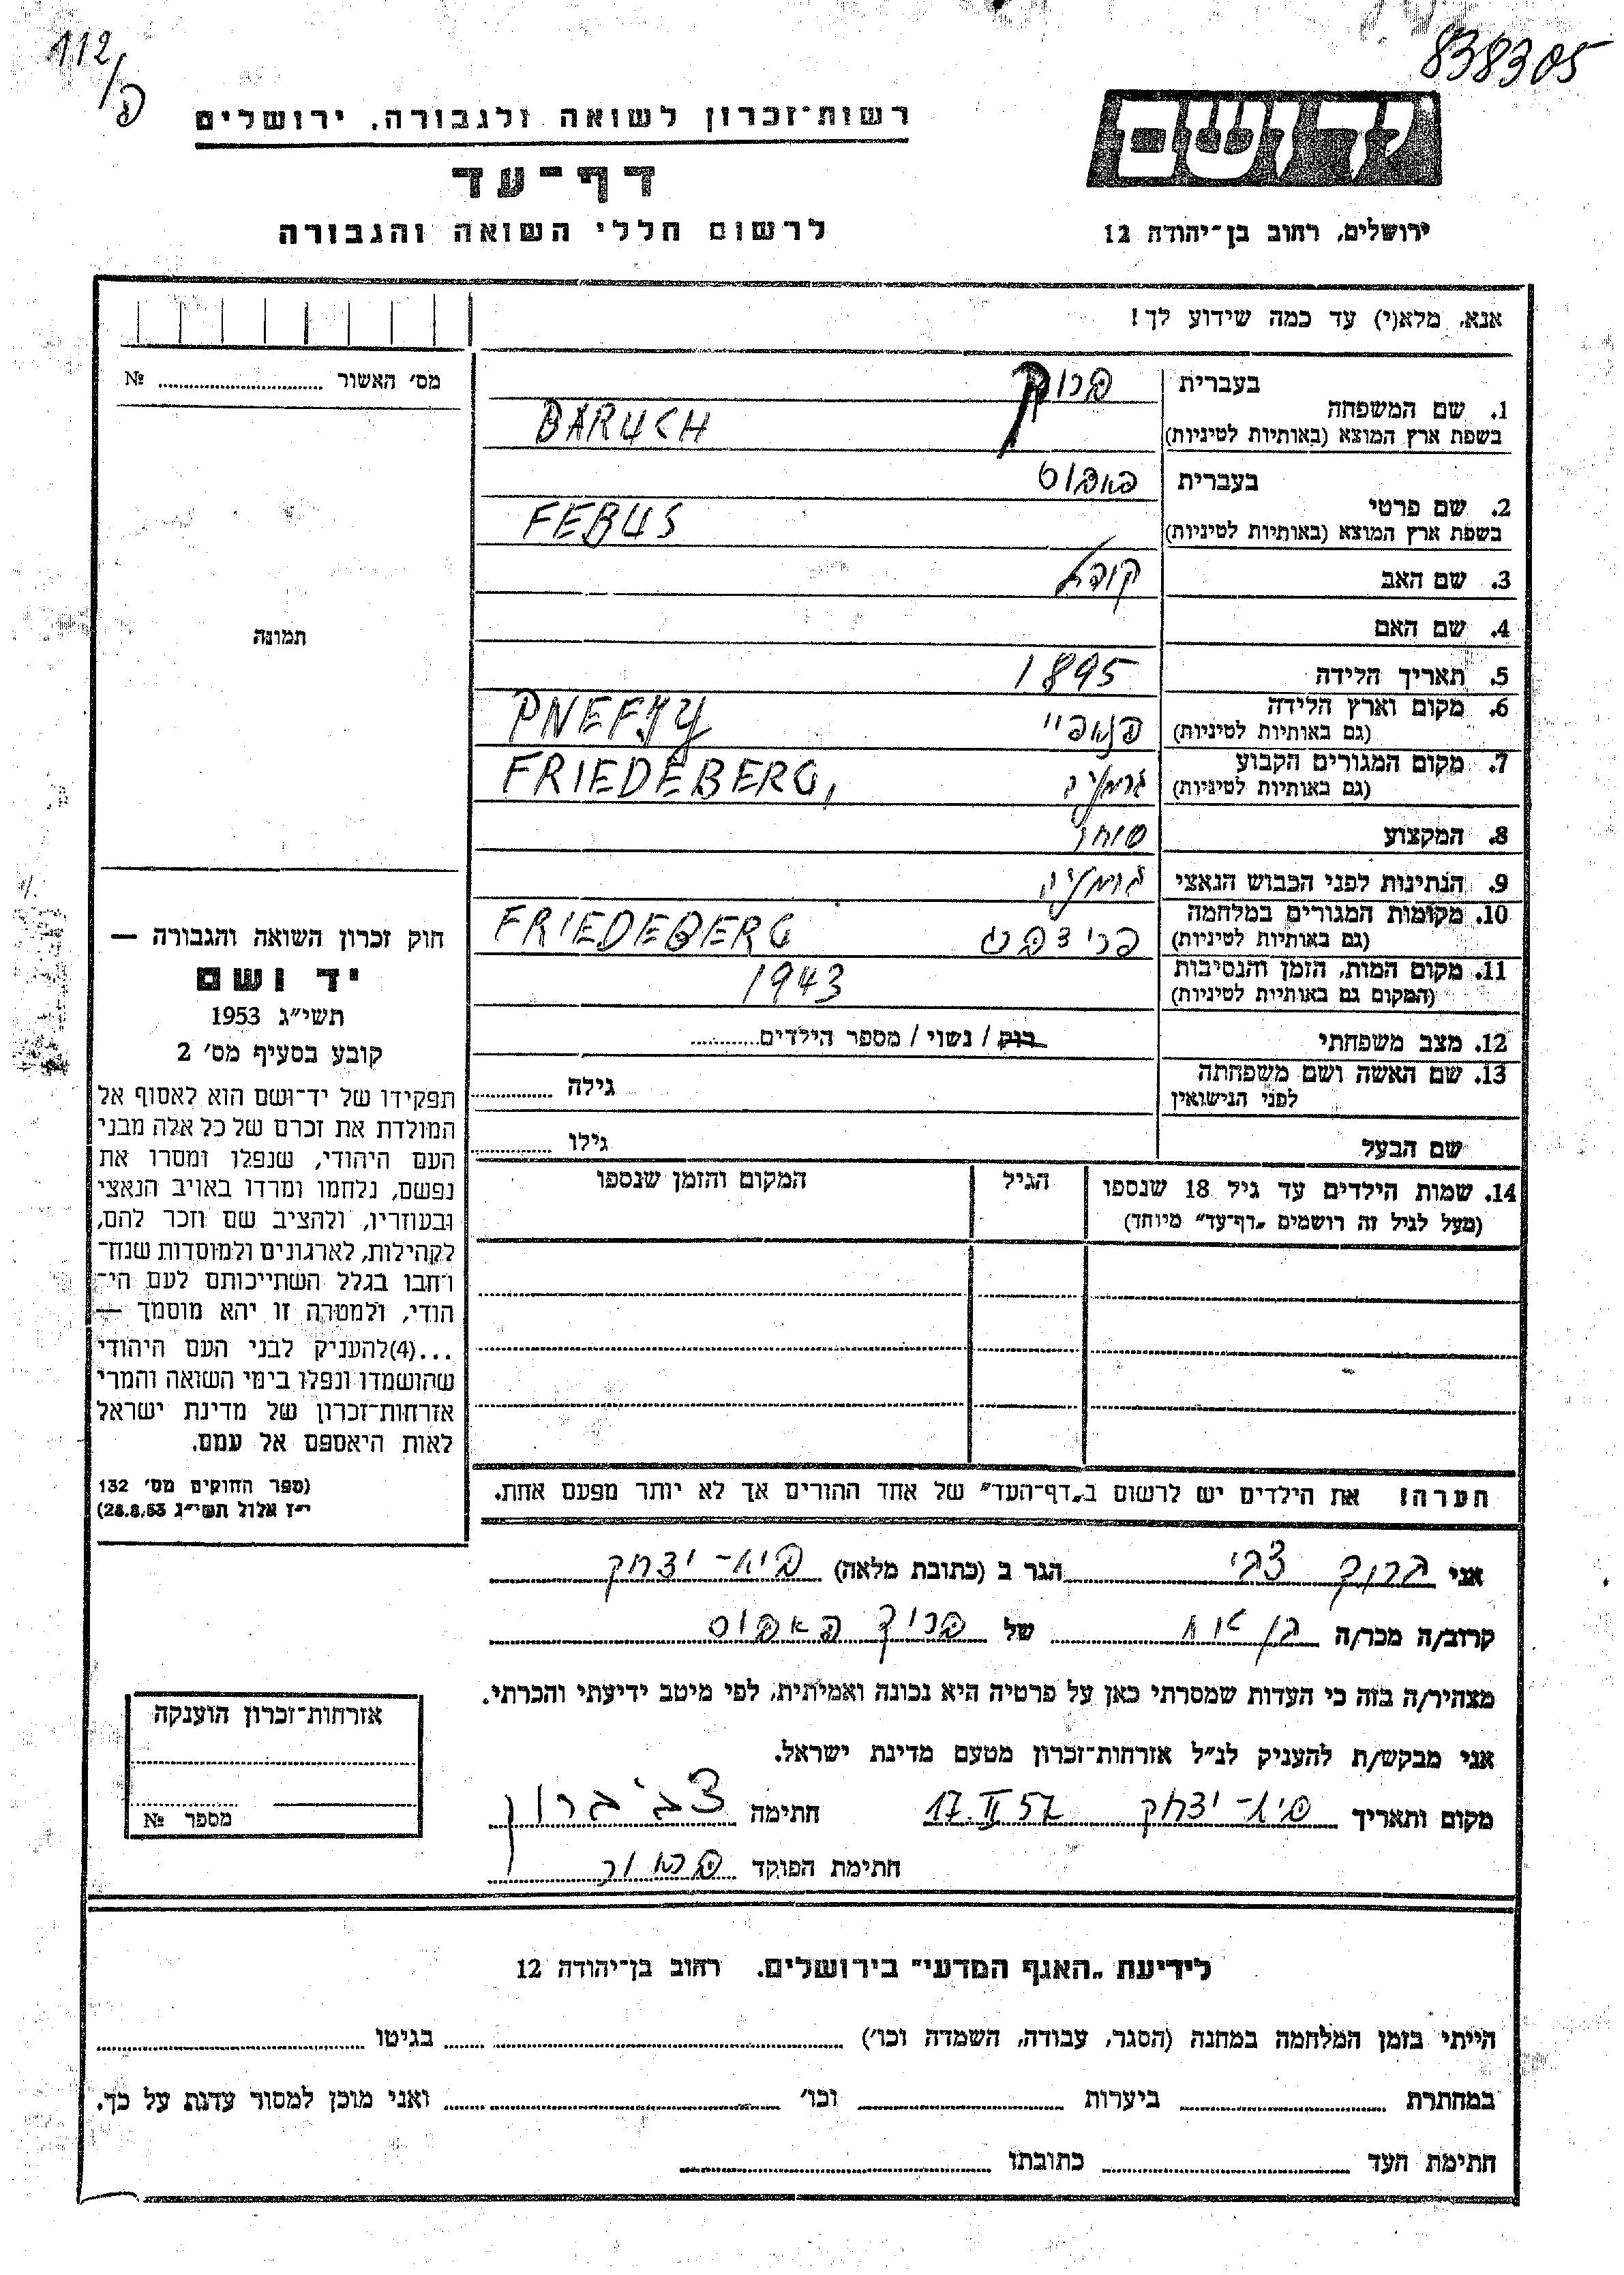 112/פ
838305
רשות־זכרון לשואה ולגבורה, ירושלים
דף־עד
לרשום חללי השואה והגבורה
ידושם
ירושלים, רחוב בן־יהודה 12
אנא, מלא(י) עד כמה שידוע לך!
מס׳ האשור № 
בעברית
1. שם המשפחה
בשפת ארץ המוצא (באותיות לטיניות) BARUCH
בעברית פאבוס
2. שם פרטי
בשפת ארץ המוצא (באותיות לטיניות) FEBUS
3. שם האב
4. שם האם
5. תאריך הלידה 1895
6. מקום וארץ הלידה
(גם באותיות לטיניות)
7. מקום המגורים הקבוע
(גם באותיות לטיניות) גרמניה FRIEDEBERG,
8. המקצוע סוחר
9. הנתינות לפני הכבוש הנאצי גרמניה
10. מקומות המגורים במלחמה
(גם באותיות לטיניות) פרידברג FRIEDEBERG
11. מקום המות, הזמן והנסיבות
(המקום גם באותיות לטיניות) 1943
12. מצב משפחתי רוק / נשוי / מספר הילדים
13. שם האשה ושם משפחתה
לפני הנישואין גילה
שם הבעל גילו
14. שמות הילדים עד גיל 18 שנספו
(מעל לגיל זה רושמים „דף־עד״ מיוחד)
הגיל
המקום והזמן שנספו
תמונה
חוק זכרון השואה והגבורה —
יד ושם
תשי״ג 1953
קובע בסעיף מס׳ 2
תפקידו של יד־ושם הוא לאסוף אל
המולדת את זכרם של כל אלה מבני
העם היהודי, שנפלו ומסרו את
נפשם, נלחמו ומרדו באויב הנאצי
ובעוזריו, ולהציב שם וזכר להם,
לקהילות, לארגונים ולמוסדות שנח־
רחבו בגלל השתייכותם לעם הי־
הודי, ולמטרה זו יהא מוסמך —
...(4)להעניק לבני העם היהודי
שהושמדו ונפלו בימי השואה והמרי
אזרחות־זכרון של מדינת ישראל
לאות היאספם אל עמם.
(ספר החוקים מס׳ 132
י״ז אלול תשי״ג 28.8.53)
הערה! את הילדים יש לרשום ב„דף־העד״ של אחד ההורים אך לא יותר מפעם אחת.
אני ברוך צבי הגר ב (כתובת מלאה) יצחק
קרוב/ה מכר/ה בן אח של ברוך פאבוס
מצהיר/ה בזה כי העדות שמסרתי כאן על פרטיה היא נכונה ואמיתית, לפי מיטב ידיעתי והכרתי.
אני מבקש/ת להעניק לנ״ל אזרחות־זכרון מטעם מדינת ישראל.
מקום ותאריך יצחק 17.II 57 חתימה צבי ברוך
חתימת הפוקד
אזרחות־זכרון הוענקה
מספר №
לידיעת „האגף המדעי״ בירושלים. רחוב בן־יהודה 12
הייתי בזמן המלחמה במחנה (הסגר, עבודה, השמדה וכו׳) בגיטו
במחתרת ביערות וכו׳ ואני מוכן למסור עדות על כך.
חתימת העד כתובתו